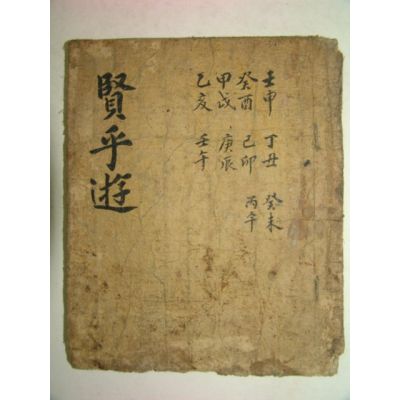 壬申 丁丑 癸未
癸酉 己卯 丙午
甲戌 庚辰
乙亥 壬午
賢乎遊